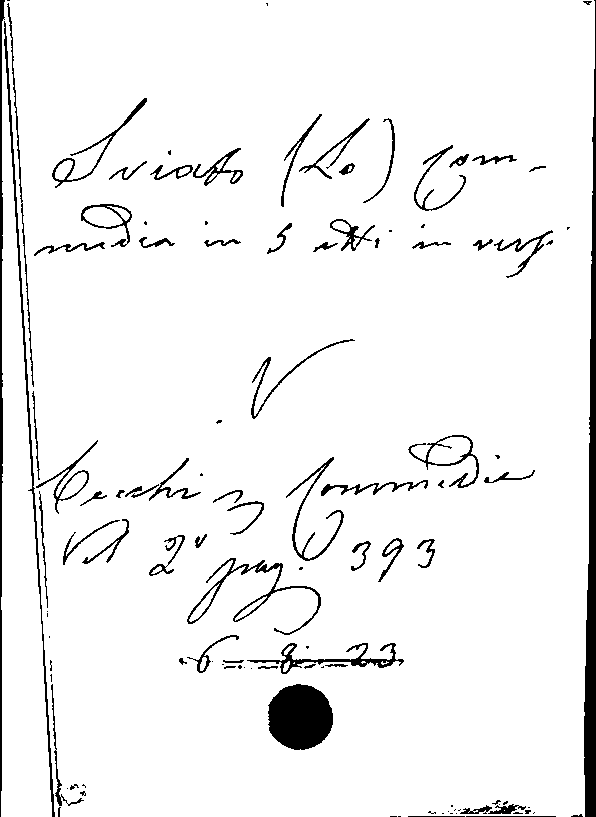 Sviato (Lo) Com-
media in 5 atti in versi
V
Cecchi Commedie
Vol 2° pag. 393
6 8 23